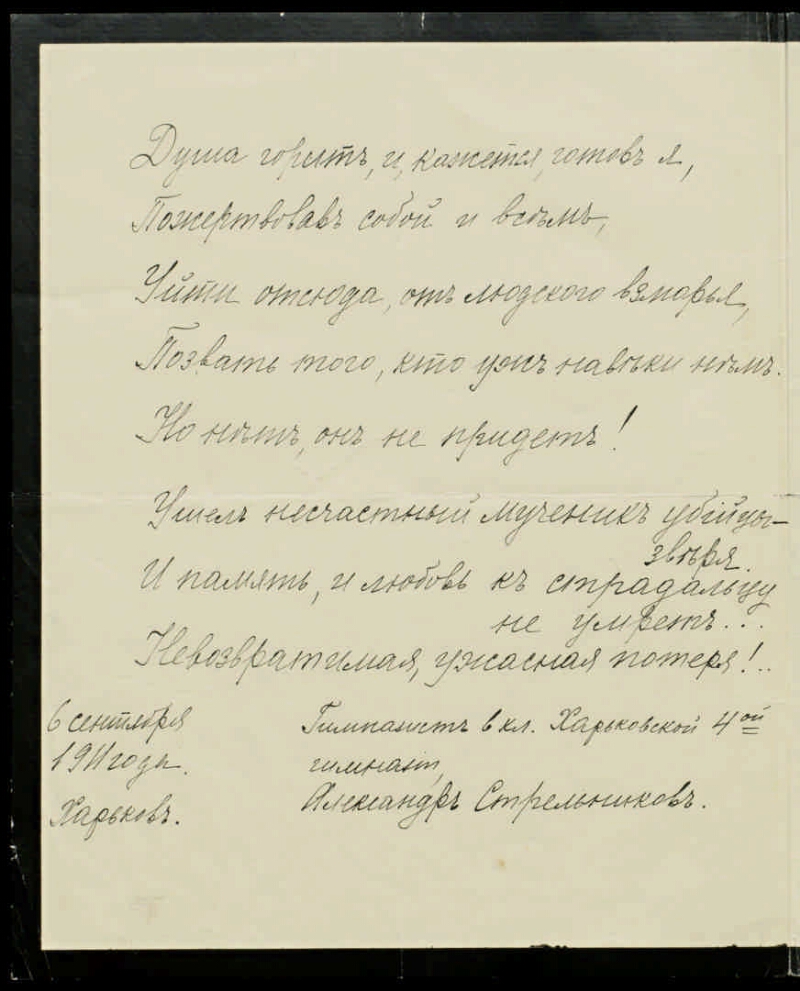 Душа горитъ, и, кажется, готовъ я,
Пожертвовавъ собой и всѣмъ,
Уйти отсюда, отъ людского взморья,
Позвать того, кто ужъ навѣки нѣмъ.
Но нѣтъ, онъ не придетъ!
Умеръ несчастный мученикъ убійцы-
звѣря.
И память, и любовь къ страдальцу
не умретъ...
Невозвратимая, ужасная потеря!..
6 сентября
1911 года.
Харьковъ.
Гимназистъ 6 кл. Харьковской 4ой
гимназіи,
Александръ Стрельниковъ.